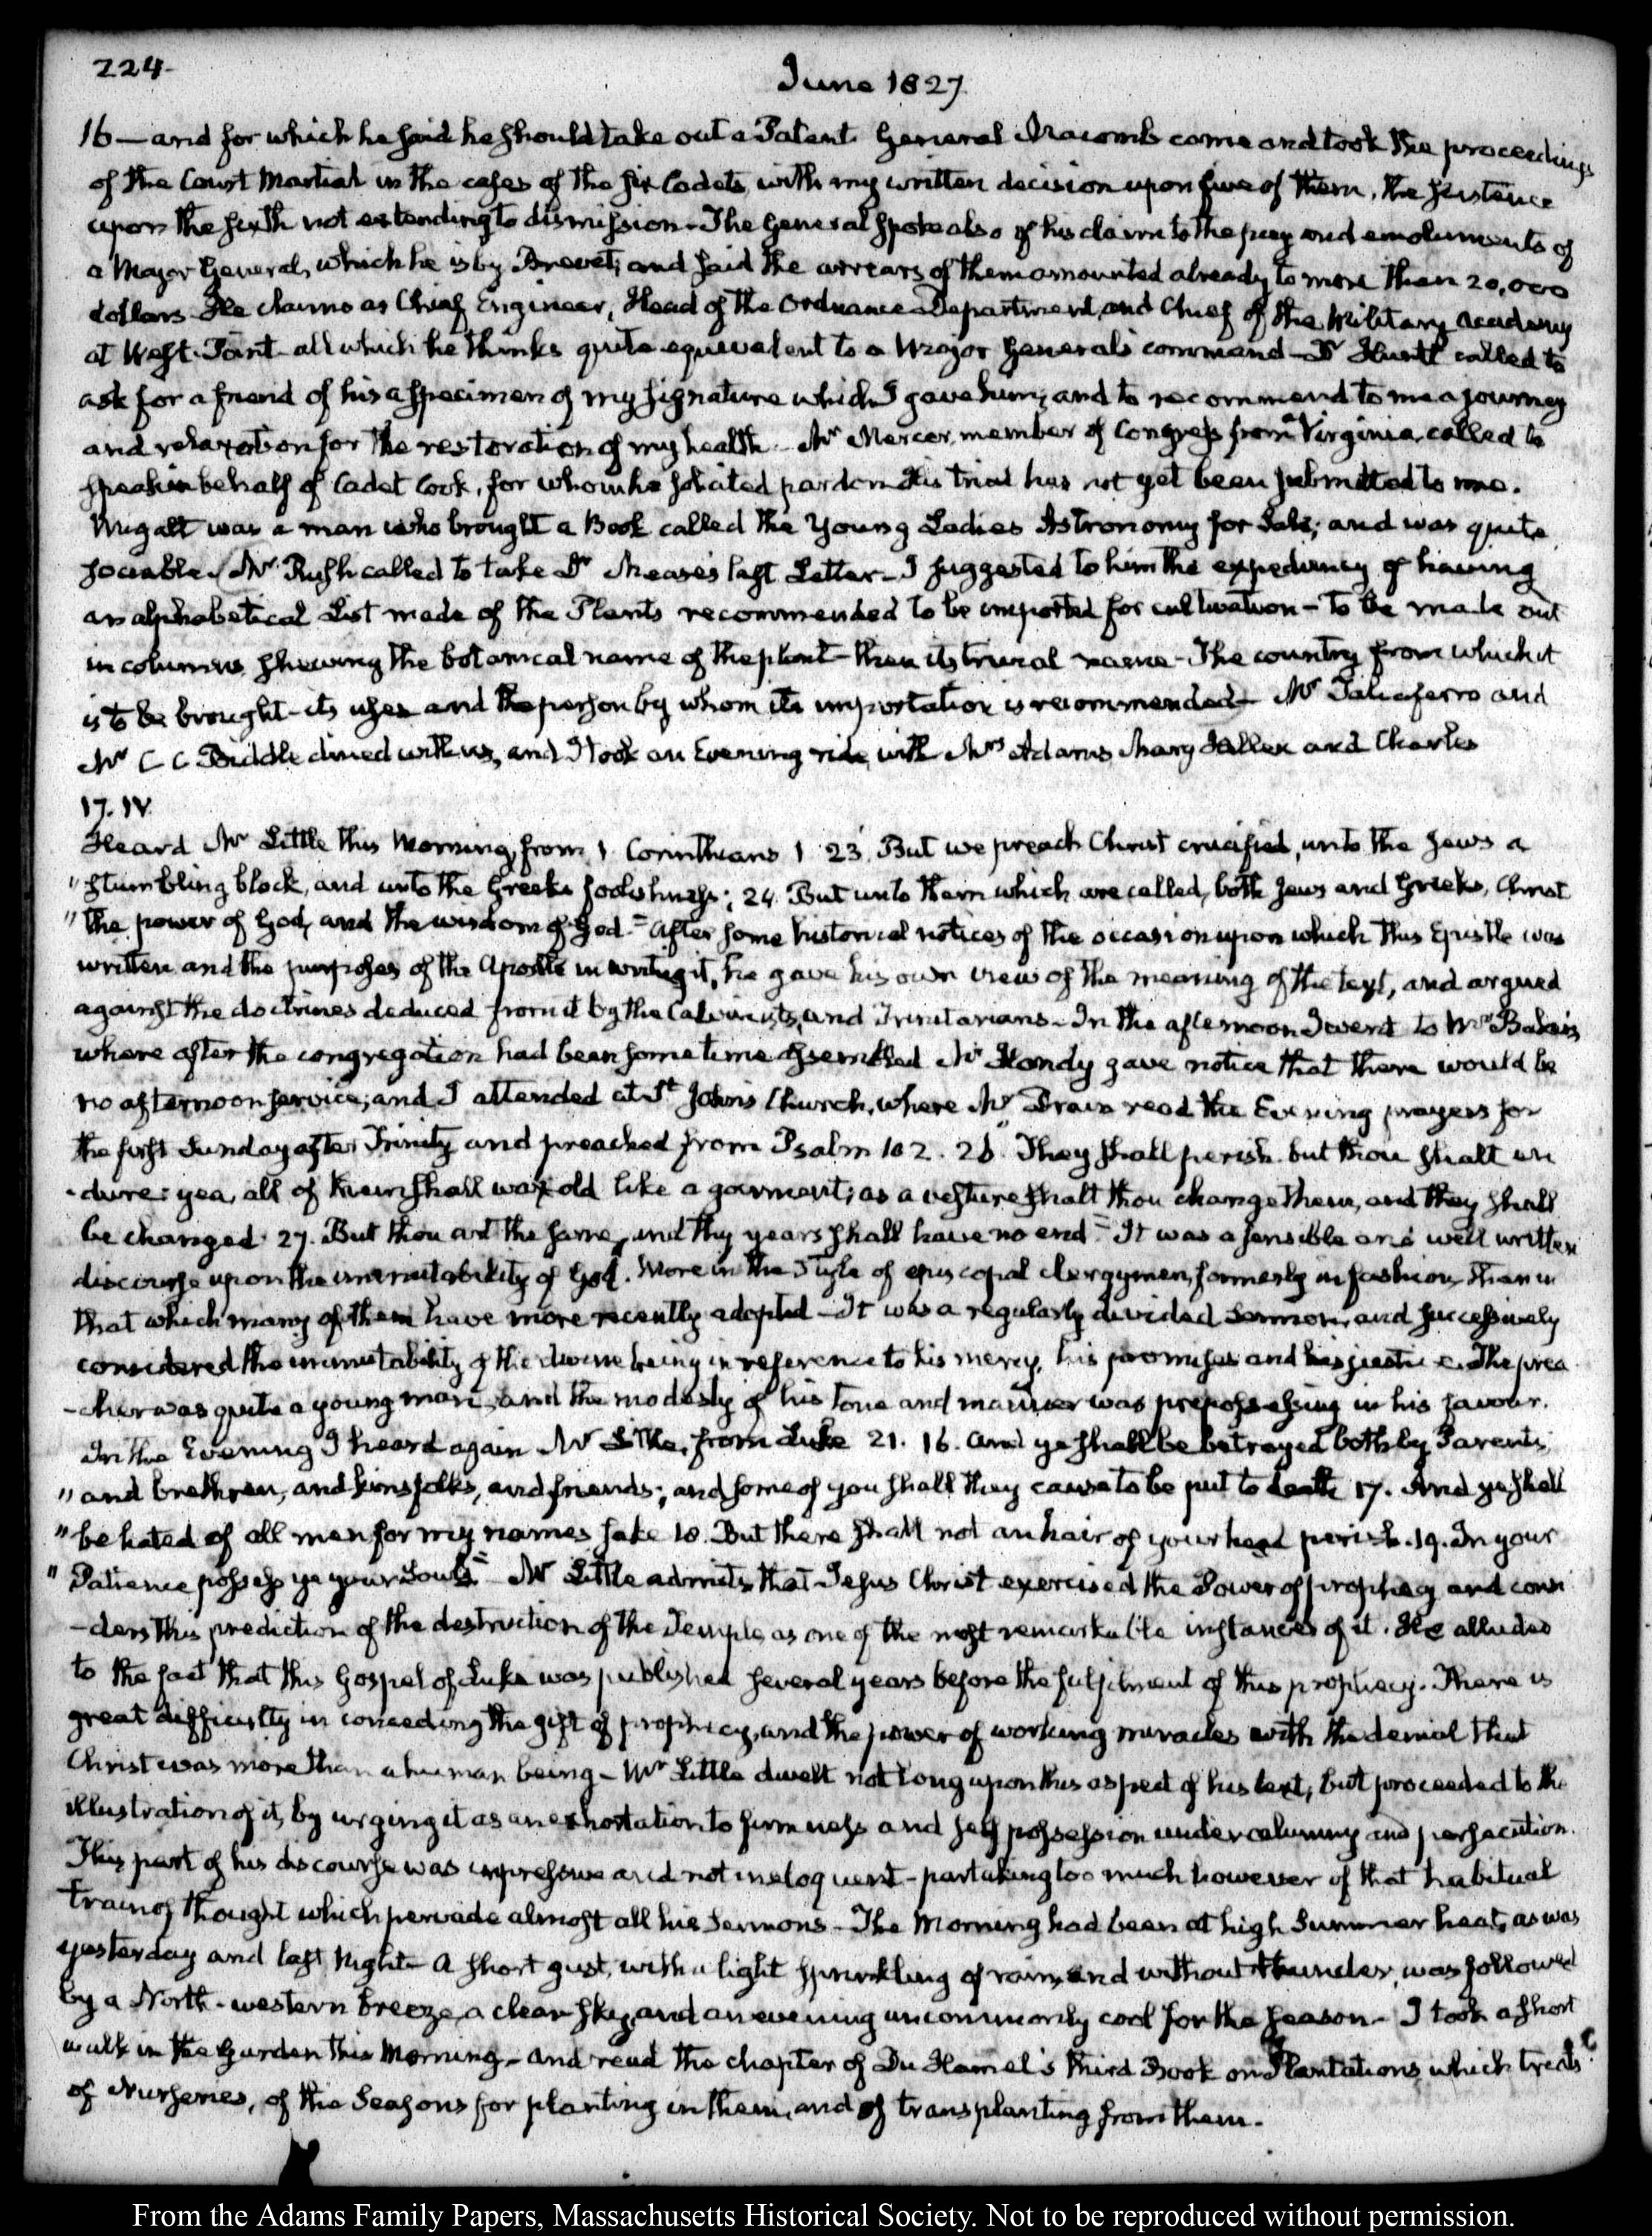 224.
June 1827
16 — and for which he said he should take out a Patent. General Macomb came and took the proceedings
of the Court Martial in the cases of the six Cadets, with my written decision upon five of them, the sentence
upon the sixth not extending to dismission. The General spoke also of his claim to the pay and emoluments of
a Major General, which he is by Brevet; and said the arrears of them amounted already to more than 20,000
dollars. He claims as Chief Engineer, Head of the Ordnance Department, and Chief of the Military Academy
at West-Point all which he thinks quite equivalent to a Major General's command — Dr Huntt called to
ask for a friend of his a specimen of my signature which I gave him; and to recommend to me a journey
and relaxation for the restoration of my health. Mr Mercer, member of Congress from Virginia, called to
speak in behalf of Cadet Cook, for whom he solicited pardon. His trial has not yet been submitted to me.
Wigatt was a man who brought a Book called the Young Ladies Astronomy for Sale; and was quite
sociable. Mr Rush called to take Dr Mease's last Letter — I suggested to him the expediency of having
an alphabetical List made of the Plants recommended to be imported for cultivation — to be made out
in columns shewing the botanical name of the plant — then its trivial name — The country from which it
is to be brought — its uses and the person by whom its importation is recommended — Mr Taliaferro and
Mr C C Biddle dined with us, and I took an Evening ride with Mrs Adams Mary Hellen and Charles
17. IV.
Heard Mr Little this Morning, from 1 Corinthians 1 23. But we preach Christ crucified, unto the Jews a
" stumbling block, and unto the Greeks foolishness; 24 But unto them which are called, both Jews and Greeks, Christ
" the power of God, and the wisdom of God." After some historical notices of the occasion upon which this Epistle was
written and the purposes of the Apostle in writing it, he gave his own view of the meaning of the text, and argued
against the doctrines deduced from it by the Calvinists, and Trinitarians — In the afternoon I went to Mr Baker's
where after the congregation had been some time assembled Mr Handy gave notice that there would be
no afternoon service; and I attended at St Johns Church, where Mr Drain read the Evening prayers for
the first Sunday after Trinity and preached from Psalm 102. 26. "They shall perish but thou shalt en
-dure: yea, all of them shall wax old like a garment; as a vesture shalt thou change them, and they shall
be changed 27. But thou art the same, and thy years shall have no end" It was a sensible and well written
discourse upon the immutability of God. More in the Style of episcopal clergymen, formerly in fashion, than in
that which many of them have more recently adopted — It was a regularly divided Sermon, and successively
considered the immutability of the divine being in reference to his mercy, his promises and his justice. The prea
-cher was quite a young man, and the modesty of his tone and manner was prepossessing in his favour.
In the Evening I heard again Mr Little, from Luke 21. 16. And ye shall be betrayed both by Parents,
" and brethren, and kinsfolks, and friends; and some of you shall they cause to be put to death 17. And ye shall
" be hated of all men for my names sake 18. But there shall not an hair of your head perish. 19. In your
" Patience possess ye your Souls" — Mr Little admits that Jesus Christ exercised the Power of prophecy and consi
-ders this prediction of the destruction of the Temple, as one of the most remarkable instances of it. He alluded
to the fact that this Gospel of Luke was published several years before the fulfilment of this prophecy. There is
great difficulty in conceding the gift of prophecy, and the power of working miracles with the denial that
Christ was more than a human being — Mr Little dwelt not long upon this aspect of his text; but proceeded to the
illustration of it, by urging it as an exhortation to firmness and self possession under calumny and persecution.
This part of his discourse was impressive and not ineloquent — partaking too much however of that habitual
train of thought which pervade almost all his Sermons — The Morning had been at high Summer heat, as was
yesterday and last Night — A short gust, with a light sprinkling of rain, and without thunder, was followed
by a North-western breeze, a clear sky, and an evening uncommonly cool for the season — I took a short
walk in the Garden this Morning — and read the chapter of Du Hamel's third Book on Plantations which treats
of Nurseries, of the Seasons for planting in them, and of transplanting from them.
From the Adams Family Papers, Massachusetts Historical Society. Not to be reproduced without permission.